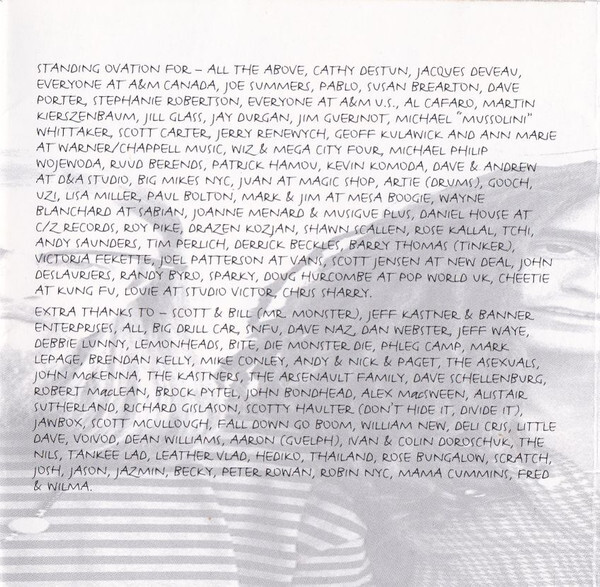 STANDING OVATION FOR – ALL THE ABOVE, CATHY DESTUN, JACQUES DEVEAU,
EVERYONE AT A&M CANADA, JOE SUMMERS, PABLO, SUSAN BREARTON, DAVE
PORTER, STEPHANIE ROBERTSON, EVERYONE AT A&M U.S., AL CAFARO, MARTIN
KIERSZENBAUM, JILL GLASS, JAY DURGAN, JIM GUERINOT, MICHAEL "MUSSOLINI"
WHITTAKER, SCOTT CARTER, JERRY RENEWYCH, GEOFF KULAWICK AND ANN MARIE
AT WARNER/CHAPPELL MUSIC, WIZ & MEGA CITY FOUR, MICHAEL PHILIP
WOJEWODA, RUUD BERENDS, PATRICK HAMOU, KEVIN KOMODA, DAVE & ANDREW
AT D&A STUDIO, BIG MIKES NYC, JUAN AT MAGIC SHOP, ARTIE (DRUMS), GOOCH,
UZI, LISA MILLER, PAUL BOLTON, MARK & JIM AT MESA BOOGIE, WAYNE
BLANCHARD AT SABIAN, JOANNE MENARD & MUSIGUE PLUS, DANIEL HOUSE AT
C/Z RECORDS, ROY PIKE, DRAZEN KOZJAN, SHAWN SCALLEN, ROSE KALLAL, TCHI,
ANDY SAUNDERS, TIM PERLICH, DERRICK BECKLES, BARRY THOMAS (TINKER),
VICTORIA FEKETTE, JOEL PATTERSON AT VANS, SCOTT JENSEN AT NEW DEAL, JOHN
DESLAURIERS, RANDY BYRO, SPARKY, DOUG HURCOMBE AT POP WORLD UK, CHEETIE
AT KUNG FU, LOUIE AT STUDIO VICTOR, CHRIS SHARRY.
EXTRA THANKS TO – SCOTT & BILL (MR. MONSTER), JEFF KASTNER & BANNER
ENTERPRISES, ALL, BIG DRILL CAR, SNFU, DAVE NAZ, DAN WEBSTER, JEFF WAYE,
DEBBIE LUNNY, LEMONHEADS, BITE, DIE MONSTER DIE, PHLEG CAMP, MARK
LEPAGE, BRENDAN KELLY, MIKE CONLEY, ANDY & NICK & PAGET, THE ASEXUALS,
JOHN McKENNA, THE KASTNERS, THE ARSENAULT FAMILY, DAVE SCHELLENBURG,
ROBERT MacLEAN, BROCK PYTEL, JOHN BONDHEAD, ALEX MacSWEEN, ALISTAIR
SUTHERLAND, RICHARD GISLASON, SCOTTY HAULTER (DON'T HIDE IT, DIVIDE IT),
JAWBOX, SCOTT MCULLOUGH, FALL DOWN GO BOOM, WILLIAM NEW, DELI CRIS, LITTLE
DAVE, VOIVOD, DEAN WILLIAMS, AARON (GUELPH), IVAN & COLIN DOROSCHUK, THE
NILS, TANKEE LAD, LEATHER VLAD, HEDIKO, THAILAND, ROSE BUNGALOW, SCRATCH,
JOSH, JASON, JAZMIN, BECKY, PETER ROWAN, ROBIN NYC, MAMA CUMMINS, FRED
& WILMA.